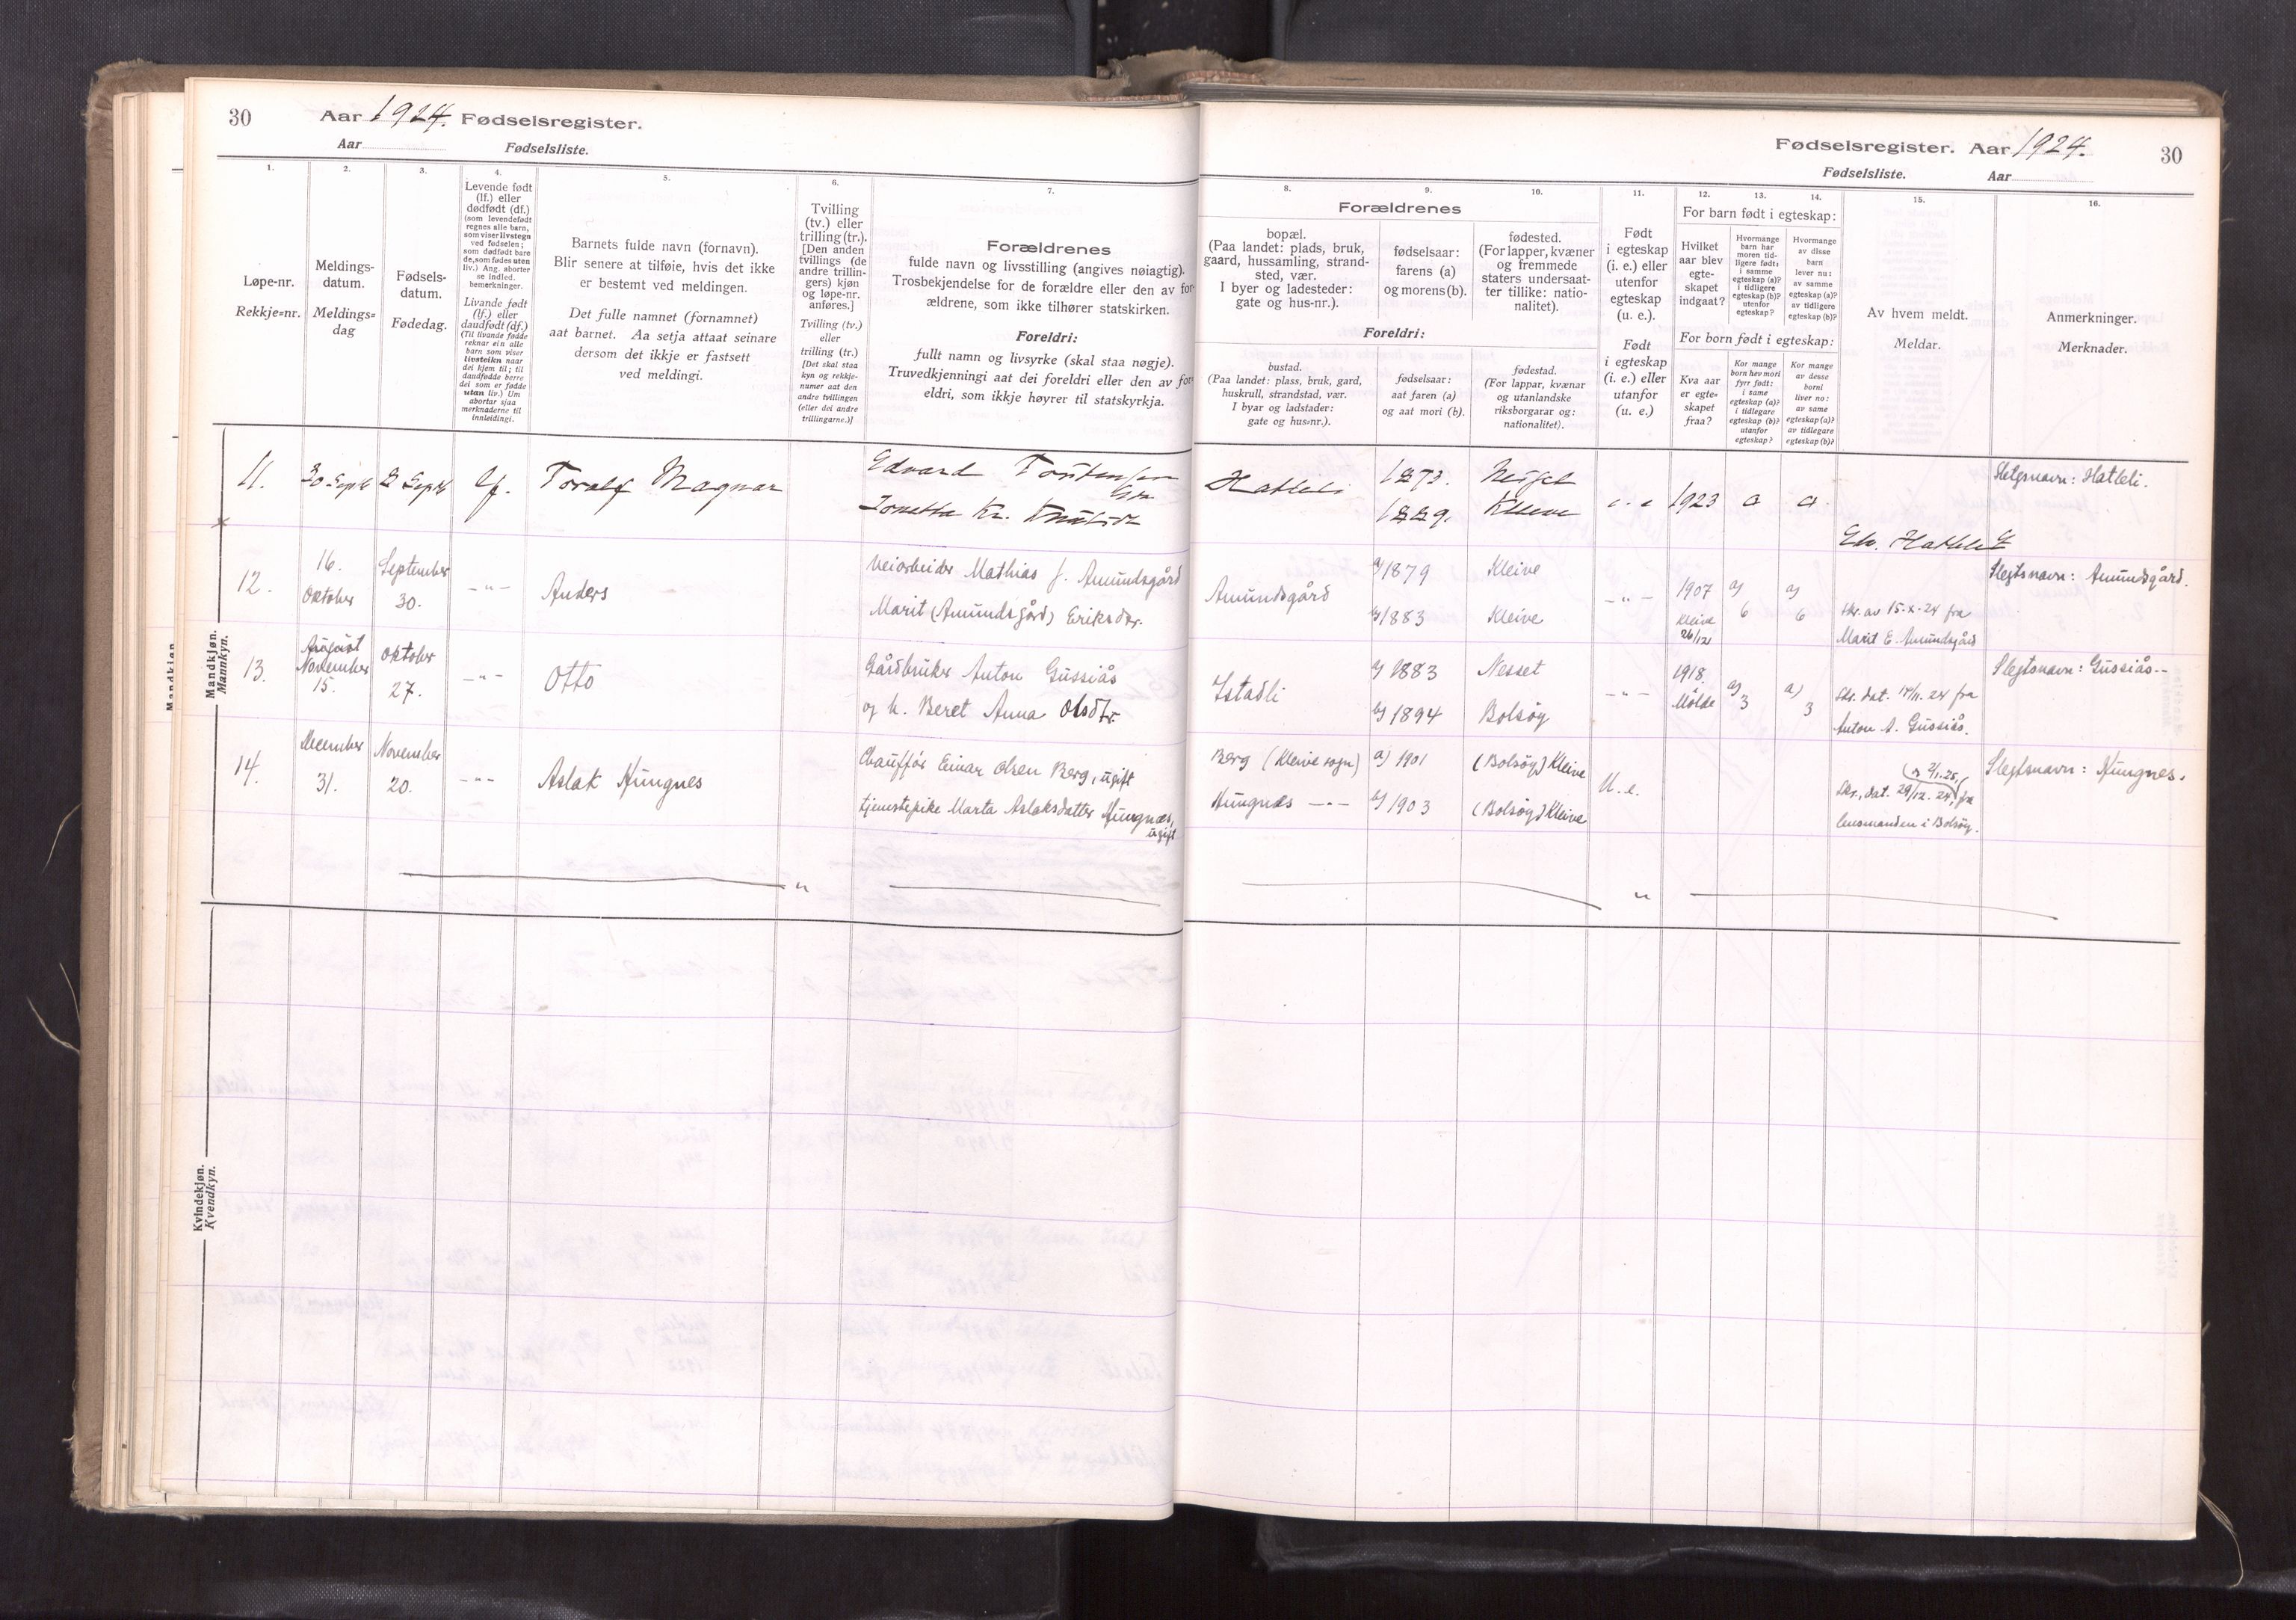 30
Aar 1924. Fødselsregister.
Aar Fødselsliste.
1.
2.
3.
4.
5.
6.
7.
Løpe-nr.
Rekkje=nr.
Meldings-
datum.
Meldings=
dag
Fødsels-
datum.
Fødedag.
Levende født
(lf.) eller
dødfødt (df.)
(som levendefødt
regnes alle barn,
som viser livstegn
ved fødselen;
som dødfødt bare
de, som fødes uten
liv.) Ang. aborter
se indled.
bemerkninger.
Livande født
(lf.) eller
daudfødt (df.)
(Til livande fødde
reknar ein alle
barn som viser
livsteikn naar
dei kjem til; til
daudfødde berre
dei som er fødde
utan liv.) Um
abortar sjaa
merknaderne til
innleidingi.
Barnets fulde navn (fornavn).
Blir senere at tilføie, hvis det ikke
er bestemt ved meldingen.
Det fulle namnet (fornamnet)
aat barnet. Aa setja attaat seinare
dersom det ikkje er fastsett
ved meldingi.
Tvilling
(tv.) eller
trilling (tr.).
[Den anden
tvillings (de
andre trillin-
gers) kjøn
og løpe-nr.
anføres.]
Tvilling (tv.)
eller
trilling (tr.)
[Det skal staa
kyn og rekkje-
numer aat den
andre tvillingen
(eller dei andre
trillingarne.)]
Forældrenes
fulde navn og livsstilling (angives nøiagtig).
Trosbekjendelse for de forældre eller den av for-
ældrene, som ikke tilhører statskirken.
Foreldri:
fullt namn og livsyrke (skal staa nøgje).
Truvedkjenningi aat dei foreldri eller den av for-
eldri, som ikkje høyrer til statskyrkja.
Mandkjøn.
Mannkyn.
11.
30 Septb
Sept
lf.
Toralf Magnar
Edvard
Jonetta Kr.
12.
16.
Oktober
September
30.
-"-
Anders
Veiarbeider Mathias J. Amundsgård
Marit (Amundsgård) Eriksdtr.
13.
August
November
15.
Oktober
27.
-"-
Otto
Gårdbruker Anton Gussiås
og h. Beret Anna Olsdtr.
14.
December
31.
November
20.
-"-
Aslak Hungnes
Chauffør Einar Olsen Berg, ugift
tjenestepike Marta Aslaksdatter Hungnes,
ugift
"
Kvindekjøn.
Kvendkyn.
Fødselsregister. Aar 1924.
30
Fødselsliste. Aar
8.
9.
10.
11.
12.
13.
14.
15.
16.
Forældrenes
bopæl.
(Paa landet: plads, bruk,
gaard, hussamling, strand-
sted, vær.
I byer og ladesteder:
gate og hus-nr.).
fødselsaar:
farens (a)
og morens (b).
fødested.
(For lapper, kvæner
og fremmede
staters undersaat-
ter tillike: natio-
nalitet).
Foreldri:
bustad.
(Paa landet: plass, bruk, gard,
huskrull, strandstad, vær.
I byar og ladstader:
gate og hus=nr.).
fødselsaar:
aat faren (a)
og aat mori (b).
fødestad.
(For lappar, kvænar
og utanlandske
riksborgarar og:
nationalitet).
Født
i egteskap
(i. e.) eller
utenfor
egteskap
(u. e.).
Født
i egteskap
(i. e.) eller
utanfor
(u. e.)
For barn født i egteskap:
Hvilket
aar blev
egte-
skapet
indgaat?
Hvormange
barn har
moren tid-
ligere født:
i samme
egteskap (a)?
i tidligere
egteskap (b)?
utenfor
egteskap?
Hvormange
av disse
barn
lever nu:
av samme
egteskap (a)?
av tidligere
egteskap (b)?
For born født i egteskap:
Kva aar
er egte=
skapet
fraa?
Kor mange
born hev mori
fyrr født:
i same
egteskap (a)?
i tidlegare
egteskap (b)?
utanfor
egteskap?
Kor mange
av desse
borni
liver no:
av same
egteskap (a)?
av tidlegare
egteskap (b)?
Av hvem meldt.
Meldar.
Anmerkninger.
Merknader.
Hatleli
1873.
1889.
Kleive
i. e
1923
Slegtsnavn: Hatleli.
Amundsgård
a) 1879
b) 1883
Kleive
Kleive
-"-
1907
Kleive
26/12
a)
6
a)
6
Skr. av 15-X-24 fra
Marit E. Amundsgård
Slegtsnavn: Amundsgård.
Istadli
a) 1883
b) 1894
Nesset
Bolsøy
-"-
1918.
Molde
a)
3
a)
3
Skr. dat. 14/11. 24 fra
Anton A. Gussiås.
Slegtsnavn: Gussiås--
Berg (Kleive sogn)
Hungnes -"-
a) 1901
b) 1903
(Bolsøy) Kleive
(Bolsøy) Kleive
U. e.
Skr., dat. 29/12. 24, fra
lensmanden i Bolsøy.
Slegtsnavn: Hungnes.
"